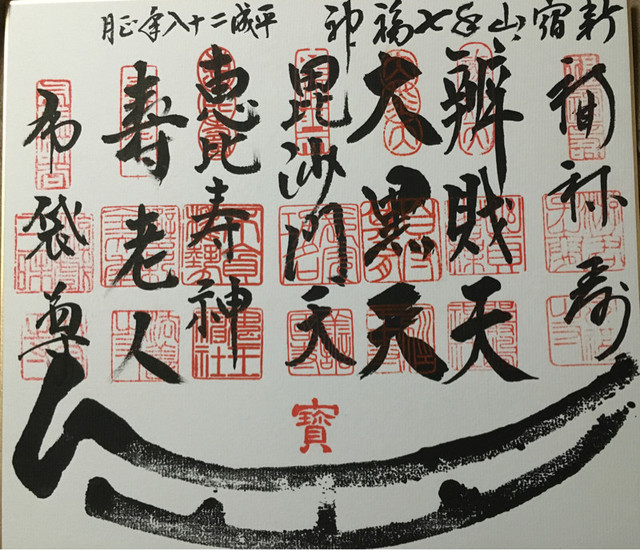 新宿山手七福神
平成二十八年正月
福禄寿
辨財天
大黒天
毘沙門天
恵比寿神
寿老人
布袋尊
寶